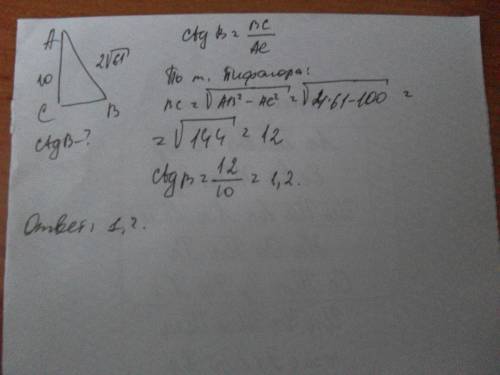 A
10
2√61
C
B
CtgB-?
Ctg B = BC/AC
По т. Пифагора:
BC = √AB² - AC² = √4·61-100 =
= √144 = 12
Ctg B = 12/10 = 1,2.
Ответ: 1,2.